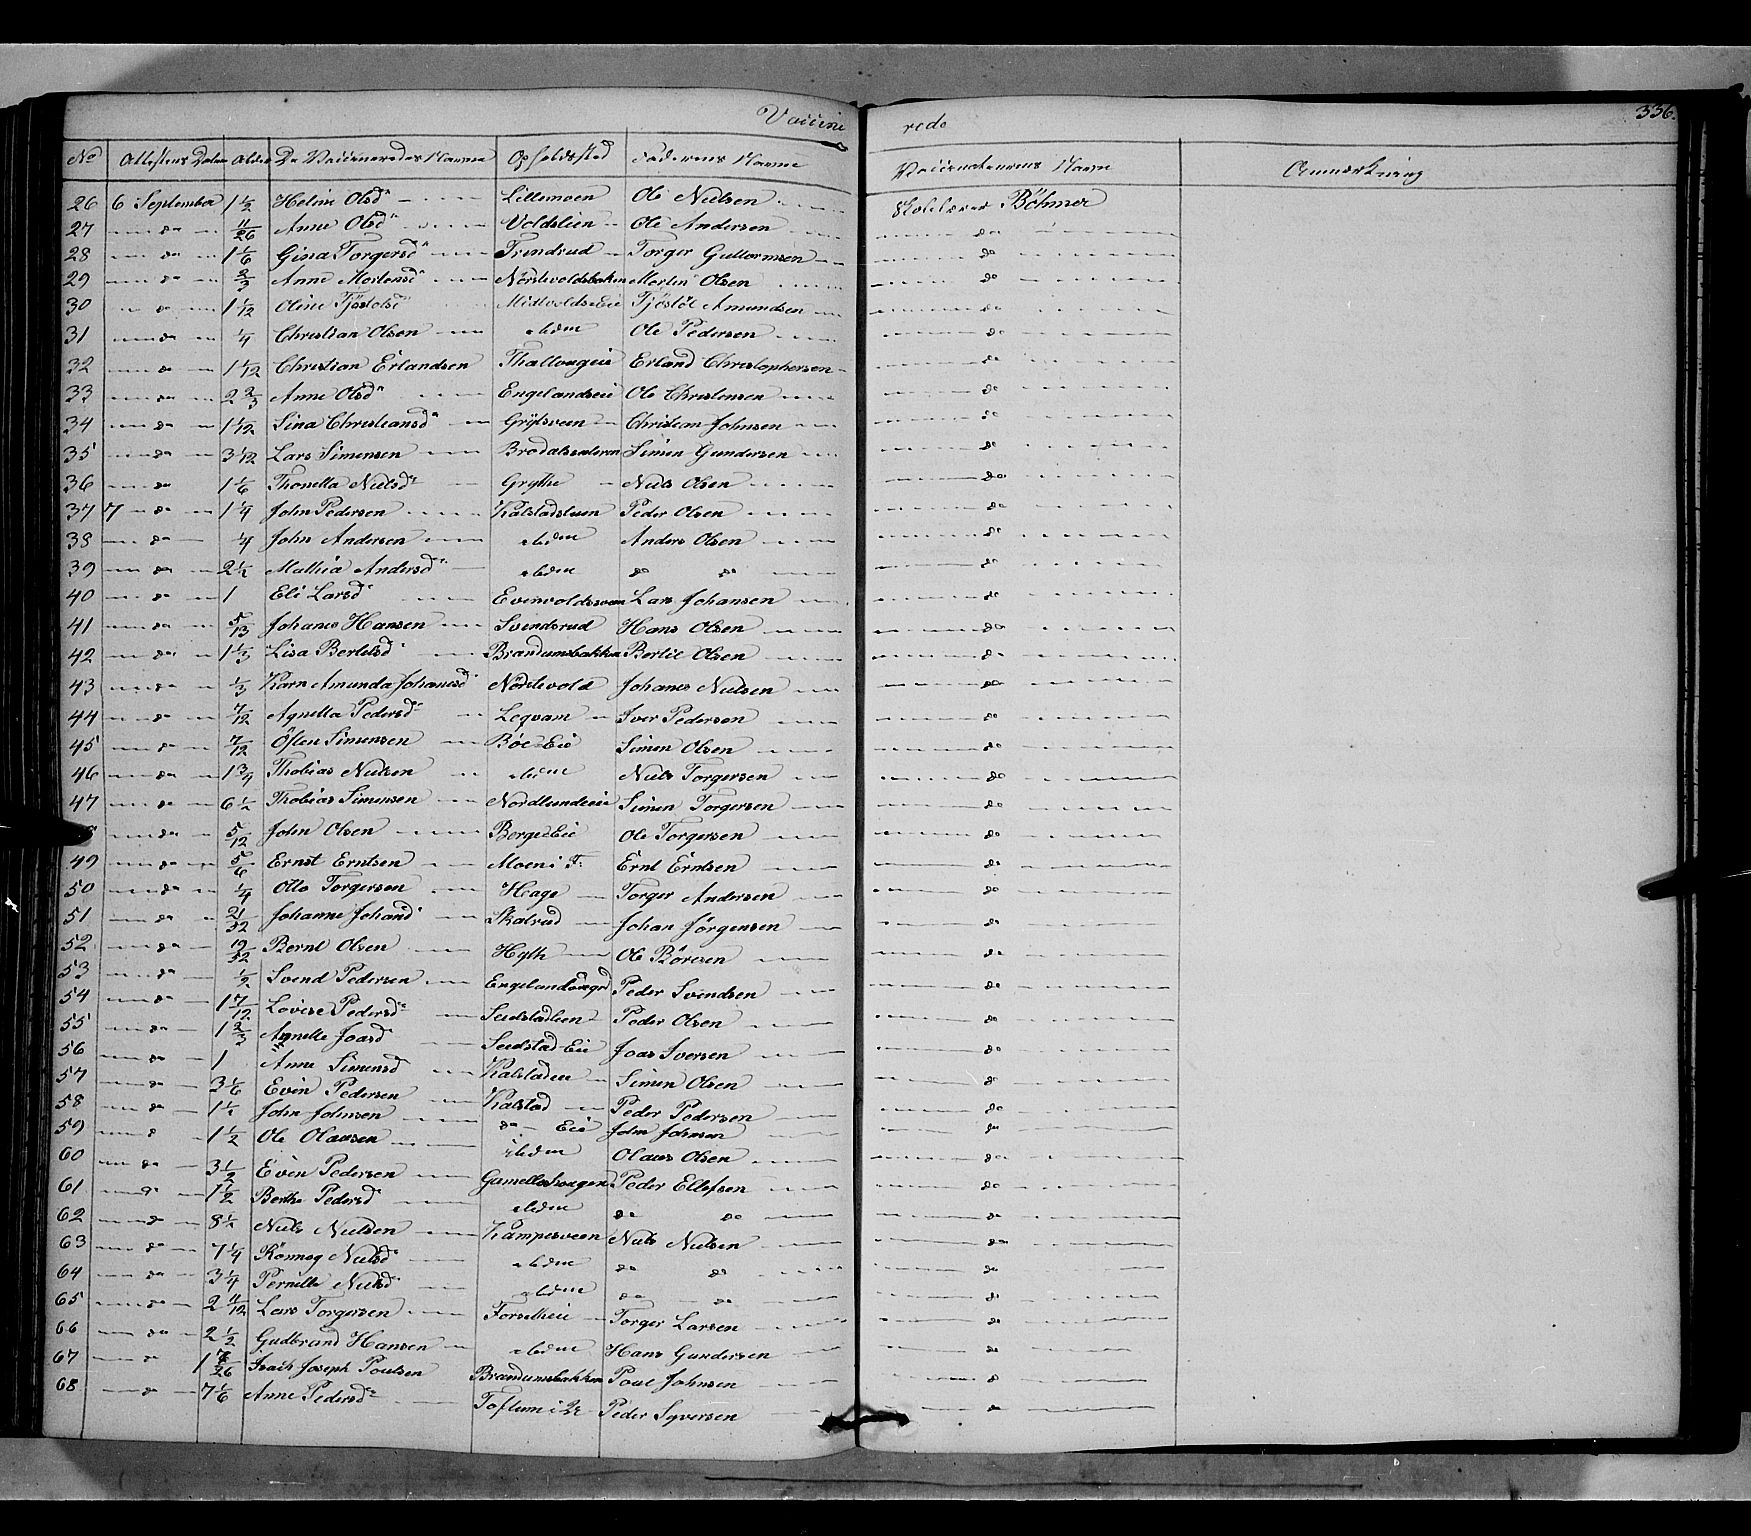 Vaccine rede 336.
No Attestens Datum Alder De Vaccineredes Navne Opholdssted Faderens Navne Vaccinateurens Navn Anmærkning
26 6 September 1 1/2 Heline Olsd Lillemoen Ole Nielsen Skolelærer Böhmer
27 do 11/26 Anne Olsd Voldslien Ole Andersen do
28 do 1 1/6 Gina Torgersd Trindrud Torger Guttormsen do
29 do 2/3 Anne Mortensd Nörstevoldsbaken Morten Olsen do
30 do 1 1/12 Oline Tjöstolsd Midtvolds Eie Tjöstöl Amundsen do
31 do 1/4 Christian Olsen ibidm Ole Pedersen do
32 do 1 1/12 Christian Erlandsen Thallougeie Erland Christophersen do
33 do 2 2/3 Anne Olsd Engelandseie Ole Christensen do
34 do 1 1/12 Sina Christiansd Grÿtsveen Christian Johnsen do
35 do 3 1/12 Lars Simensen Brodalssæteren Simen Gundersen do
36 do 1 1/6 Thonetta Nielsd Grythe Niels Olsen do
37 7 do 1 1/4 John Pedersen Kalstadstuen Peder Olsen do
38 do 1/4 John Andersen ibidm Anders Olsen do
39 do 2 1/2 Mathia Andersd ibidm do do do
40 do 1 Eli Larsd Evenvoldssveen Lars Johansen do
41 do 5/13 Johanes Hansen Svendsrud Hans Olsen do
42 do 1 1/3 Lisa Bertelsd Brandumsbakken Bertil Olsen do
43 do 1/3 Karn Amunda Johanesd Nörstevold Johanes Nielsen do
44 do 7/12 Agnetta Pedersd Leqvam Iver Pedersen do
45 do 7/12 Östen Simensen Böe-Eie Simen Olsen do
46 do 1 3/4 Thobias Nielsen ibidm Niels Torgersen do
47 do 6 1/2 Thobias Simensen Nordlundseie Simen Torgersen do
do 5/12 John Olsen Berge Eie Ole Torgersen do
49 do 5/6 Ernst Erntsen Moen i F: Ernt Erntsen do
50 do 1/4 Otto Torgersen Hage Torger Andersen do
51 do 21/52 Johanne Johansd Skalrud Johan Jörgensen do
52 do 19/52 Bernt Olsen Hyth Ole Böresen do
53 do 1/2 Svend Pedersen Engelandsegd Peder Svendsen do
54 do 1 7/12 Lovise Pedersd Seelstadlien Peder Olsen do
55 do 1 2/3 Agnette Joasd Seelstad-Eie Joas Iversen do
56 do 1 Anne Simensd Kalstaden Simen Olsen do
57 do 3 1/6 Even Pedersen Kalstad Peder Pedersen do
58 do 1 1/2 John Johnsen do Eie John Johnsen do
59 do 1 1/2 Ole Olausen ibidm Olaus Olsen do
60 do 3 1/2 Even Pedersen Gamelshaugen Peder Ellefsen do
61 do 1 1/2 Berthe Pedersd ibidm do do do
62 do 8 1/2 Niels Nielsen Kampesveen Niels Nielsen do
63 do 7 1/4 Rönnog Nielsd ibidm do do do
64 do 3 1/4 Pernille Nielsd ibidm do do do
65 do 2 11/12 Lars Torgersen Forsetheie Torger Larsen do
66 do 2 1/2 Gudbrand Hansen ibidm Hans Gundersen do
67 do 1 7/26 Isach Joseph Poulsen Brandumsbakken Poul Johnsen do
68 do 7 1/6 Anne Pedersd Toftum i Peder Syversen do